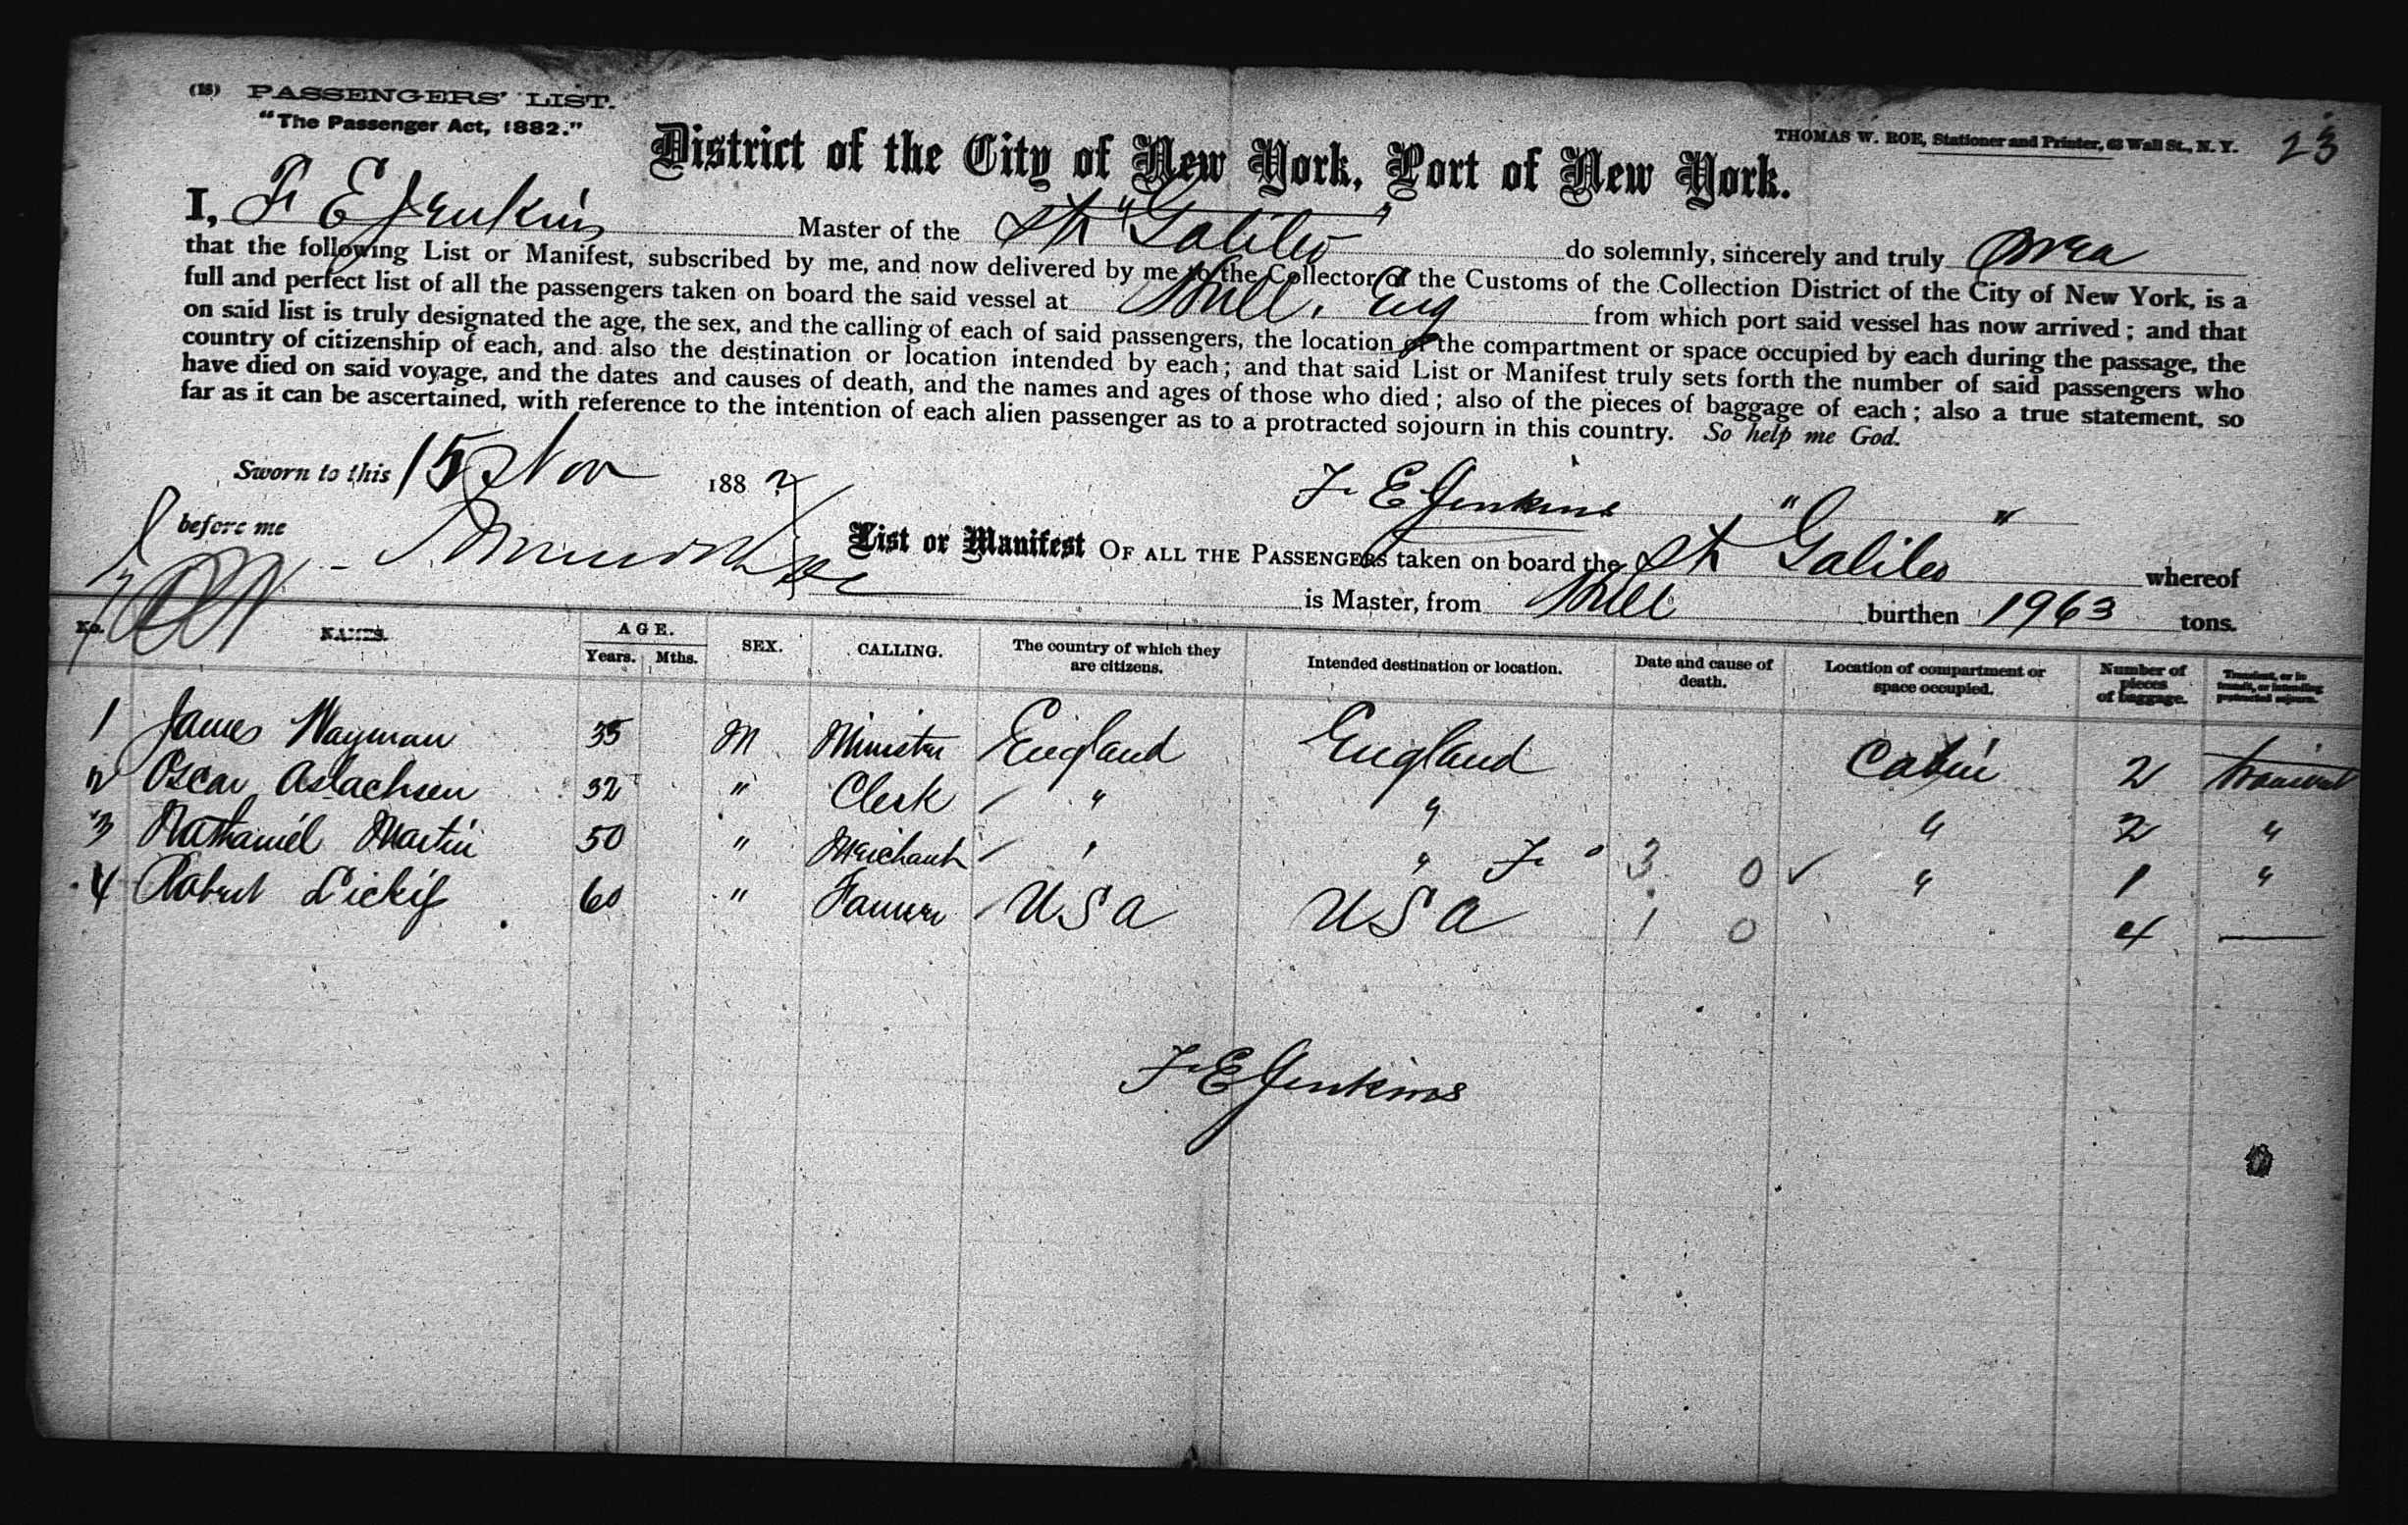 (18) PASSENGERS' LIST.
"The Passenger Act, 1882."
THOMAS W. ROE, Stationer and Printer, 63 Wall St., N. Y.
23
District of the City of New York, Port of New York.
I, F E Jenkins Master of the Str "Galileo" do solemnly, sincerely and truly swea
that the following List or Manifest, subscribed by me, and now delivered by me to the Collector of the Customs of the Collection District of the City of New York, is a
full and perfect list of all the passengers taken on board the said vessel at Hull, Eng from which port said vessel has now arrived; and that
on said list is truly designated the age, the sex, and the calling of each of said passengers, the location of the compartment or space occupied by each during the passage, the
country of citizenship of each, and also the destination or location intended by each; and that said List or Manifest truly sets forth the number of said passengers who
have died on said voyage, and the dates and causes of death, and the names and ages of those who died; also of the pieces of baggage of each; also a true statement, so
far as it can be ascertained, with reference to the intention of each alien passenger as to a protracted sojourn in this country. So help me God.
Sworn to this 15 Nov 188
F E Jenkins
before me
List or Manifest OF ALL THE PASSENGERS taken on board the Str "Galileo" whereof
is Master, from Hull burthen 1963 tons.
No. NAMES. AGE. Years. Mths. SEX. CALLING. The country of which they are citizens. Intended destination or location. Date and cause of death. Location of compartment or space occupied. Number of pieces of baggage. Transient, or in transit, or intending protracted sojourn.
1 James Wayman 35 M Minister England England Cabin 2 transient
2 Oscar Aslachsen 32 " Clerk " " " 2 "
3 Nathaniel Martin 50 " Merchant " " F 3 0 " 1 "
4 Robert 60 " Farmer U S A U S A 1 0 4 —
F E Jenkins